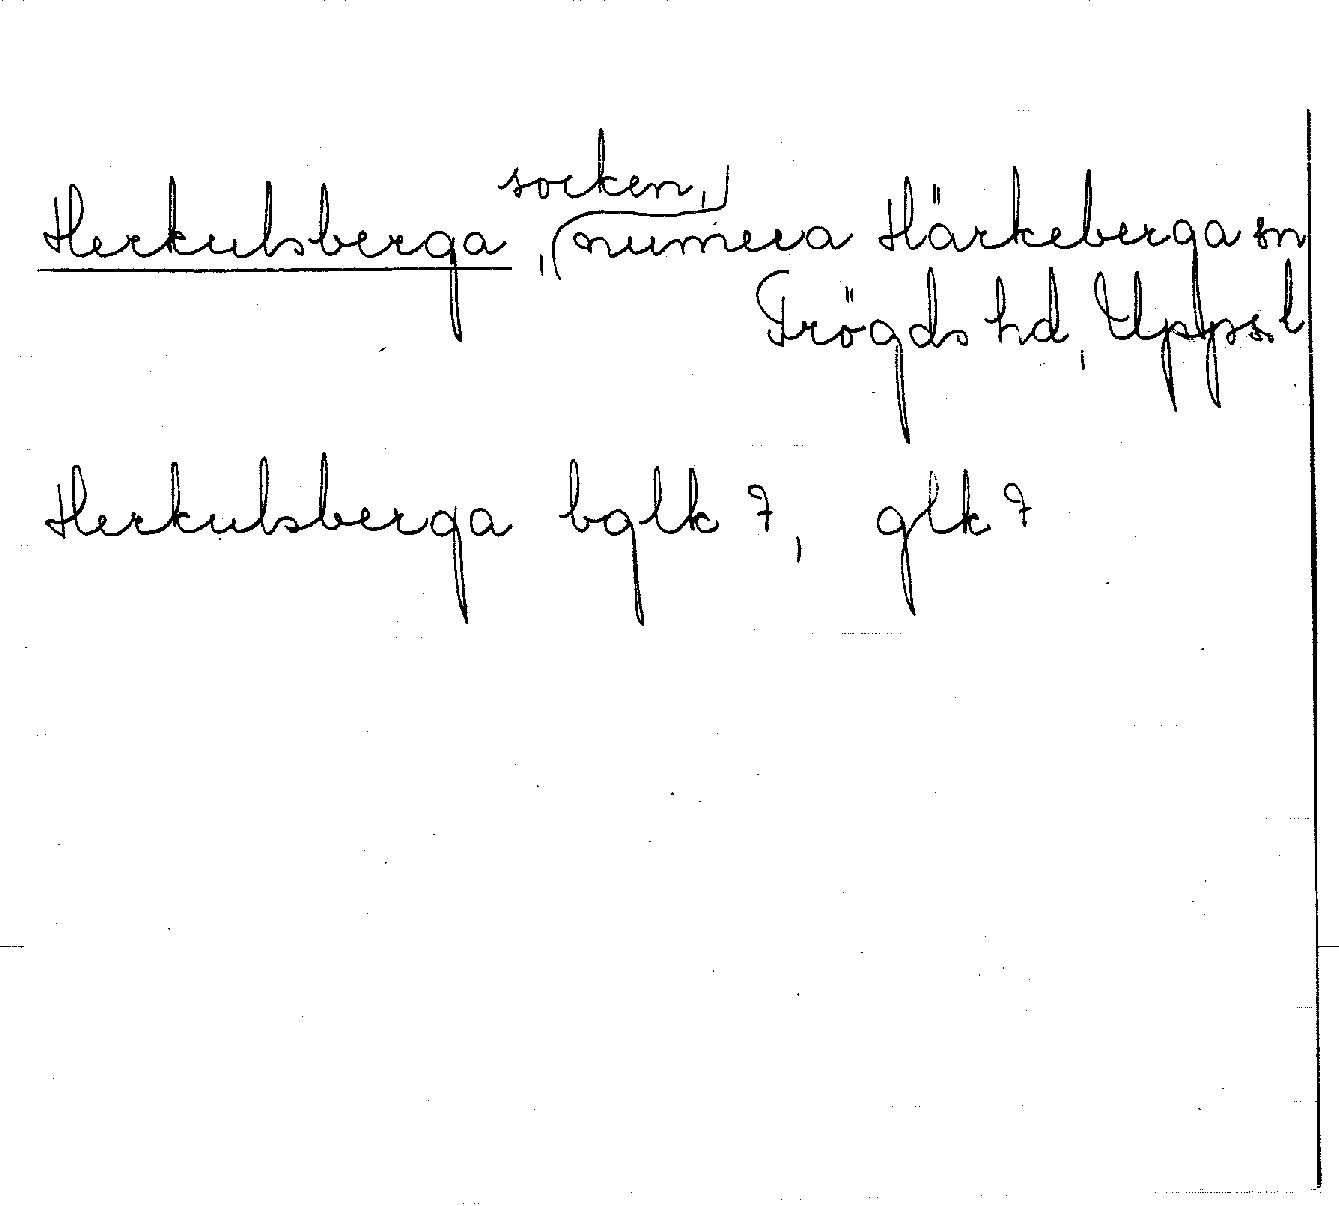 Herkulsberga, socken, numera Härkeberga sn
Trögds hd, Upps. l
Herkulsberga bglk 7, glk 7